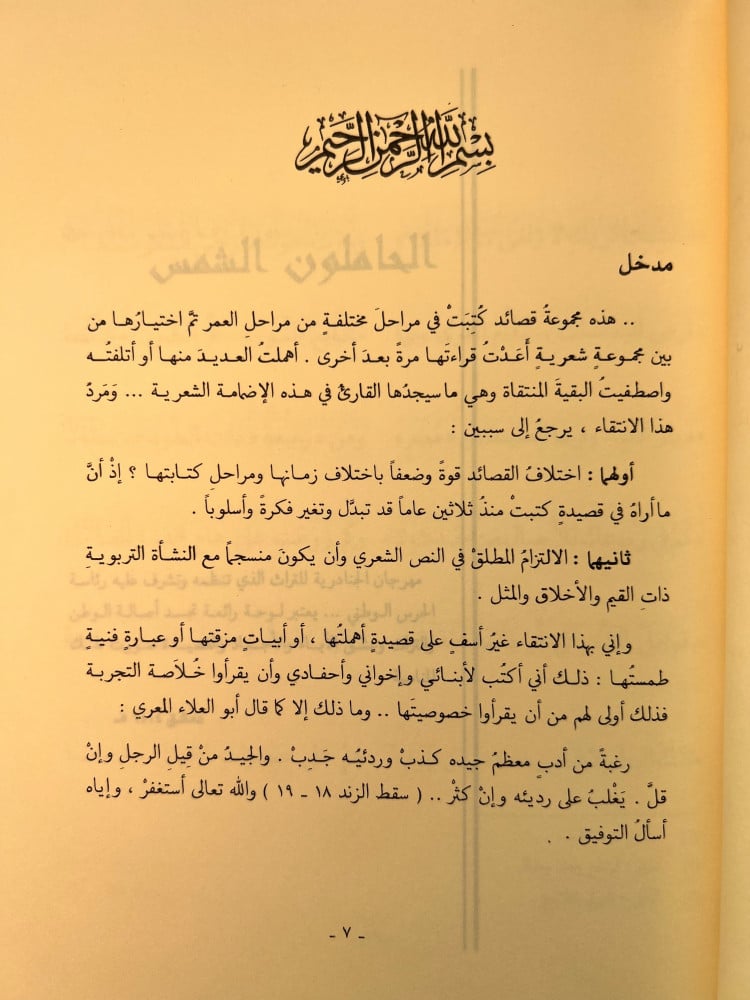 بِسْمِ اللَّهِ الرَّحْمٰنِ الرَّحِيمِ
مدخل
.. هذه مجموعةُ قصائد كُتِبَتْ في مراحلَ مختلفةٍ من مراحلِ العمر تمَّ اختيارُها من
بين مجموعةٍ شعريةٍ أَعَدْتُ قراءتَها مرةً بعدَ أخرى . أهملتُ العديدَ منها أو أتلفتُه
واصطفيتُ البقيةَ المنتقاة وهي ما سيجدُها القارئُ في هذه الإضمامة الشعرية ... وَمَردُّ
هذا الانتقاء ، يرجعُ إلى سببين :
أولهما : اختلافُ القصائد قوةً وضعفاً باختلاف زمانها ومراحلِ كتابتها ؟ إذْ أنَّ
ما أراهُ في قصيدةٍ كتبتْ منذُ ثلاثين عاماً قد تبدَّل وتغير فكرةً وأسلوباً .
ثانيهما : الالتزامُ المطلقْ في النص الشعري وأن يكونَ منسجماً مع النشأة التربويةِ
ذاتِ القيم والأخلاق والمثل .
وإني بهذا الانتقاء غيرُ أسفٍ على قصيدةٍ أهملتُها ، أو أبياتٍ مزقتها أو عبارةٍ فنيةٍ
طمستُها : ذلك أني أكتُب لأبنائي وإخواني وأحفادي وأن يقرأوا خُلاَصة التجربة
فذلك أولى لهم من أن يقرأوا خصوصيتَها .. وما ذلك إلا كما قال أبو العلاء المعري :
رغبةً من أدبٍ معظمُ جيده كذبْ وردئيُه جَدِبْ . والجيدُ منْ قيلِ الرجلِ وإنْ
قلَّ . يَغْلبُ على رديئه وإنْ كثرْ .. ( سقط الزند ١٨ ـ ١٩ ) والله تعالى أستغفرْ ، وإياه
أسألُ التوفيق .
ـ ٧ ـ